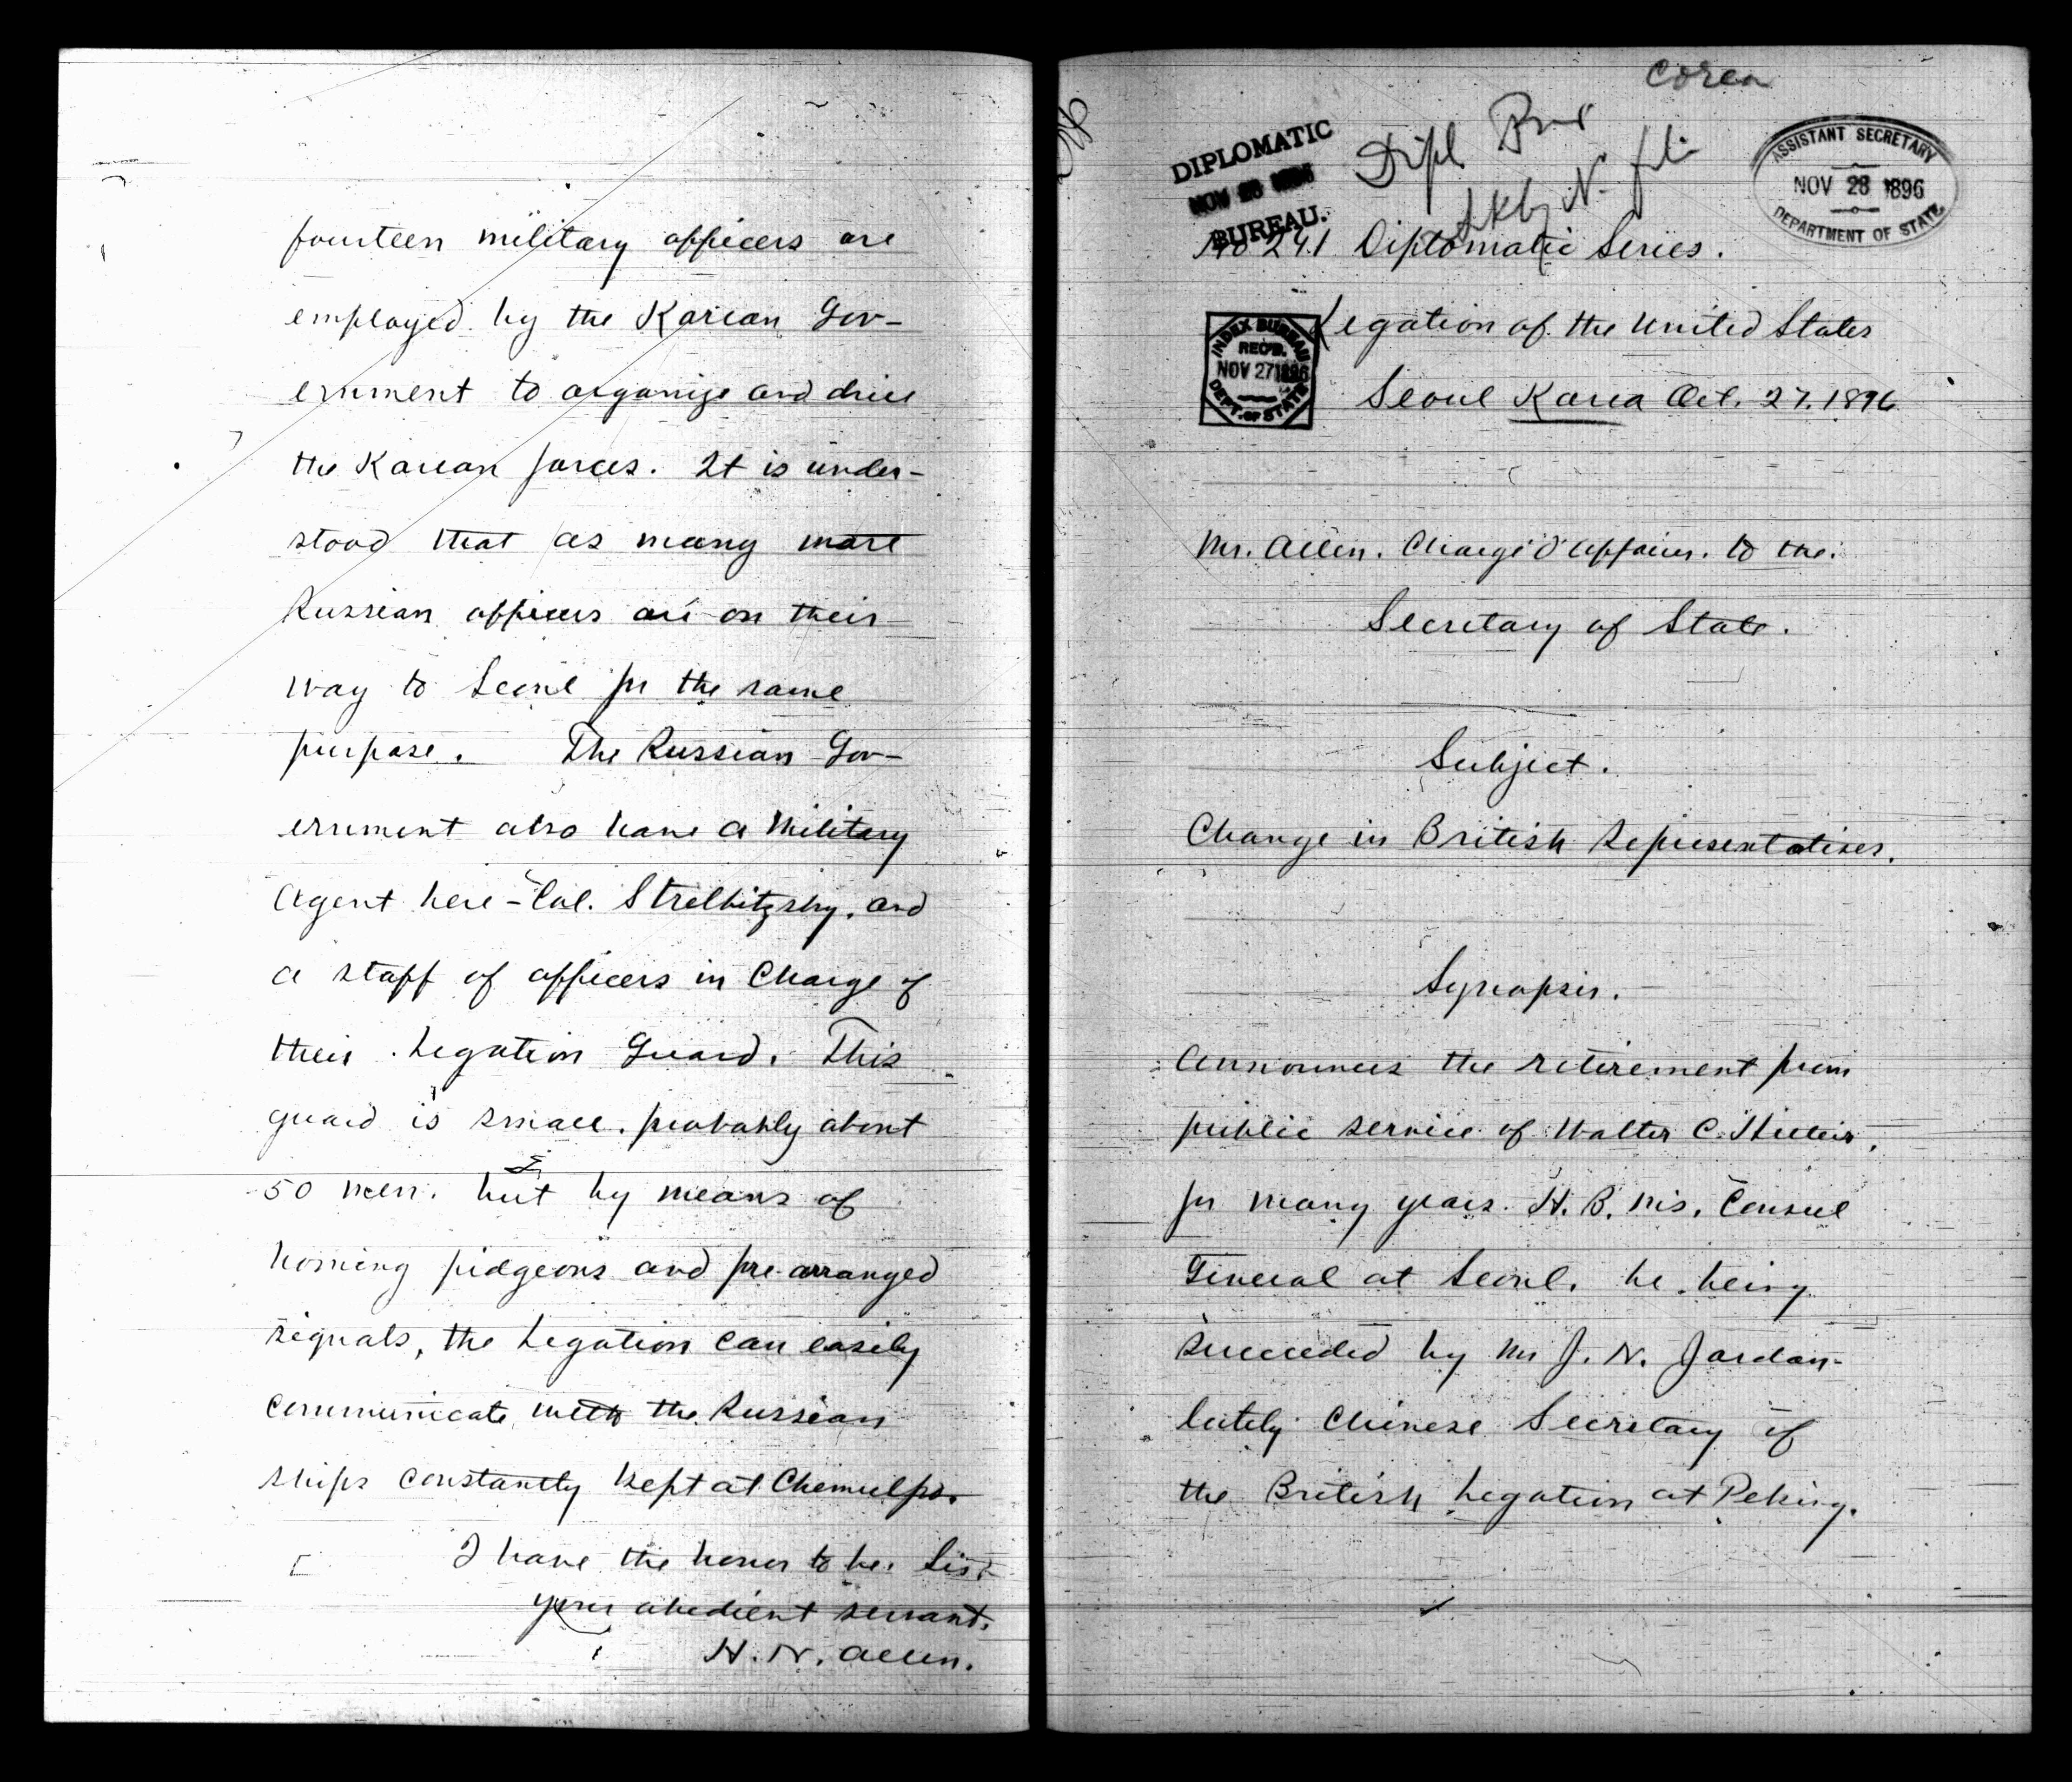 fourteen military officers are
employed by the Korean Gov-
ernment to organize and drill
the Korean forces. It is under-
stood that as many more
Russian officers are on their
way to Seoul for the same
purpose. The Russian Gov-
ernment also have a Military
Agent here - Col. Strelbitzsky, and
a staff of officers in Charge of
their Legation Guard. This
guard is small, probably about
50 men, but by means of
homing pidgeons and pre-arranged
signals, the Legation can easily
communicate with the Russian
ships constantly kept at Chemulpo.
I have the honor to be, Sir,
your obedient servant,
H. N. Allen.
Corea
DIPLOMATIC
NOV 28 1896
BUREAU.
Dipl Bur
ASSISTANT SECRETARY
NOV 28 1896
DEPARTMENT OF STATE
No 241 Diplomatic Series.
Legation of the United States
INDEX BUREAU
REC'D.
NOV 27 1896
DEPT. OF STATE
Seoul Korea Oct. 27. 1896
Mr. Allen. Chargé d'Affaires. to the
Secretary of State.
Subject.
Change in British Representatives.
Synopsis.
Announces the retirement from
public service of Walter C. Hillier,
for many years H. B. Ms. Consul
General at Seoul, he being
succeeded by Mr J. N. Jordan-
lately Chinese Secretary of
the British Legation at Peking.